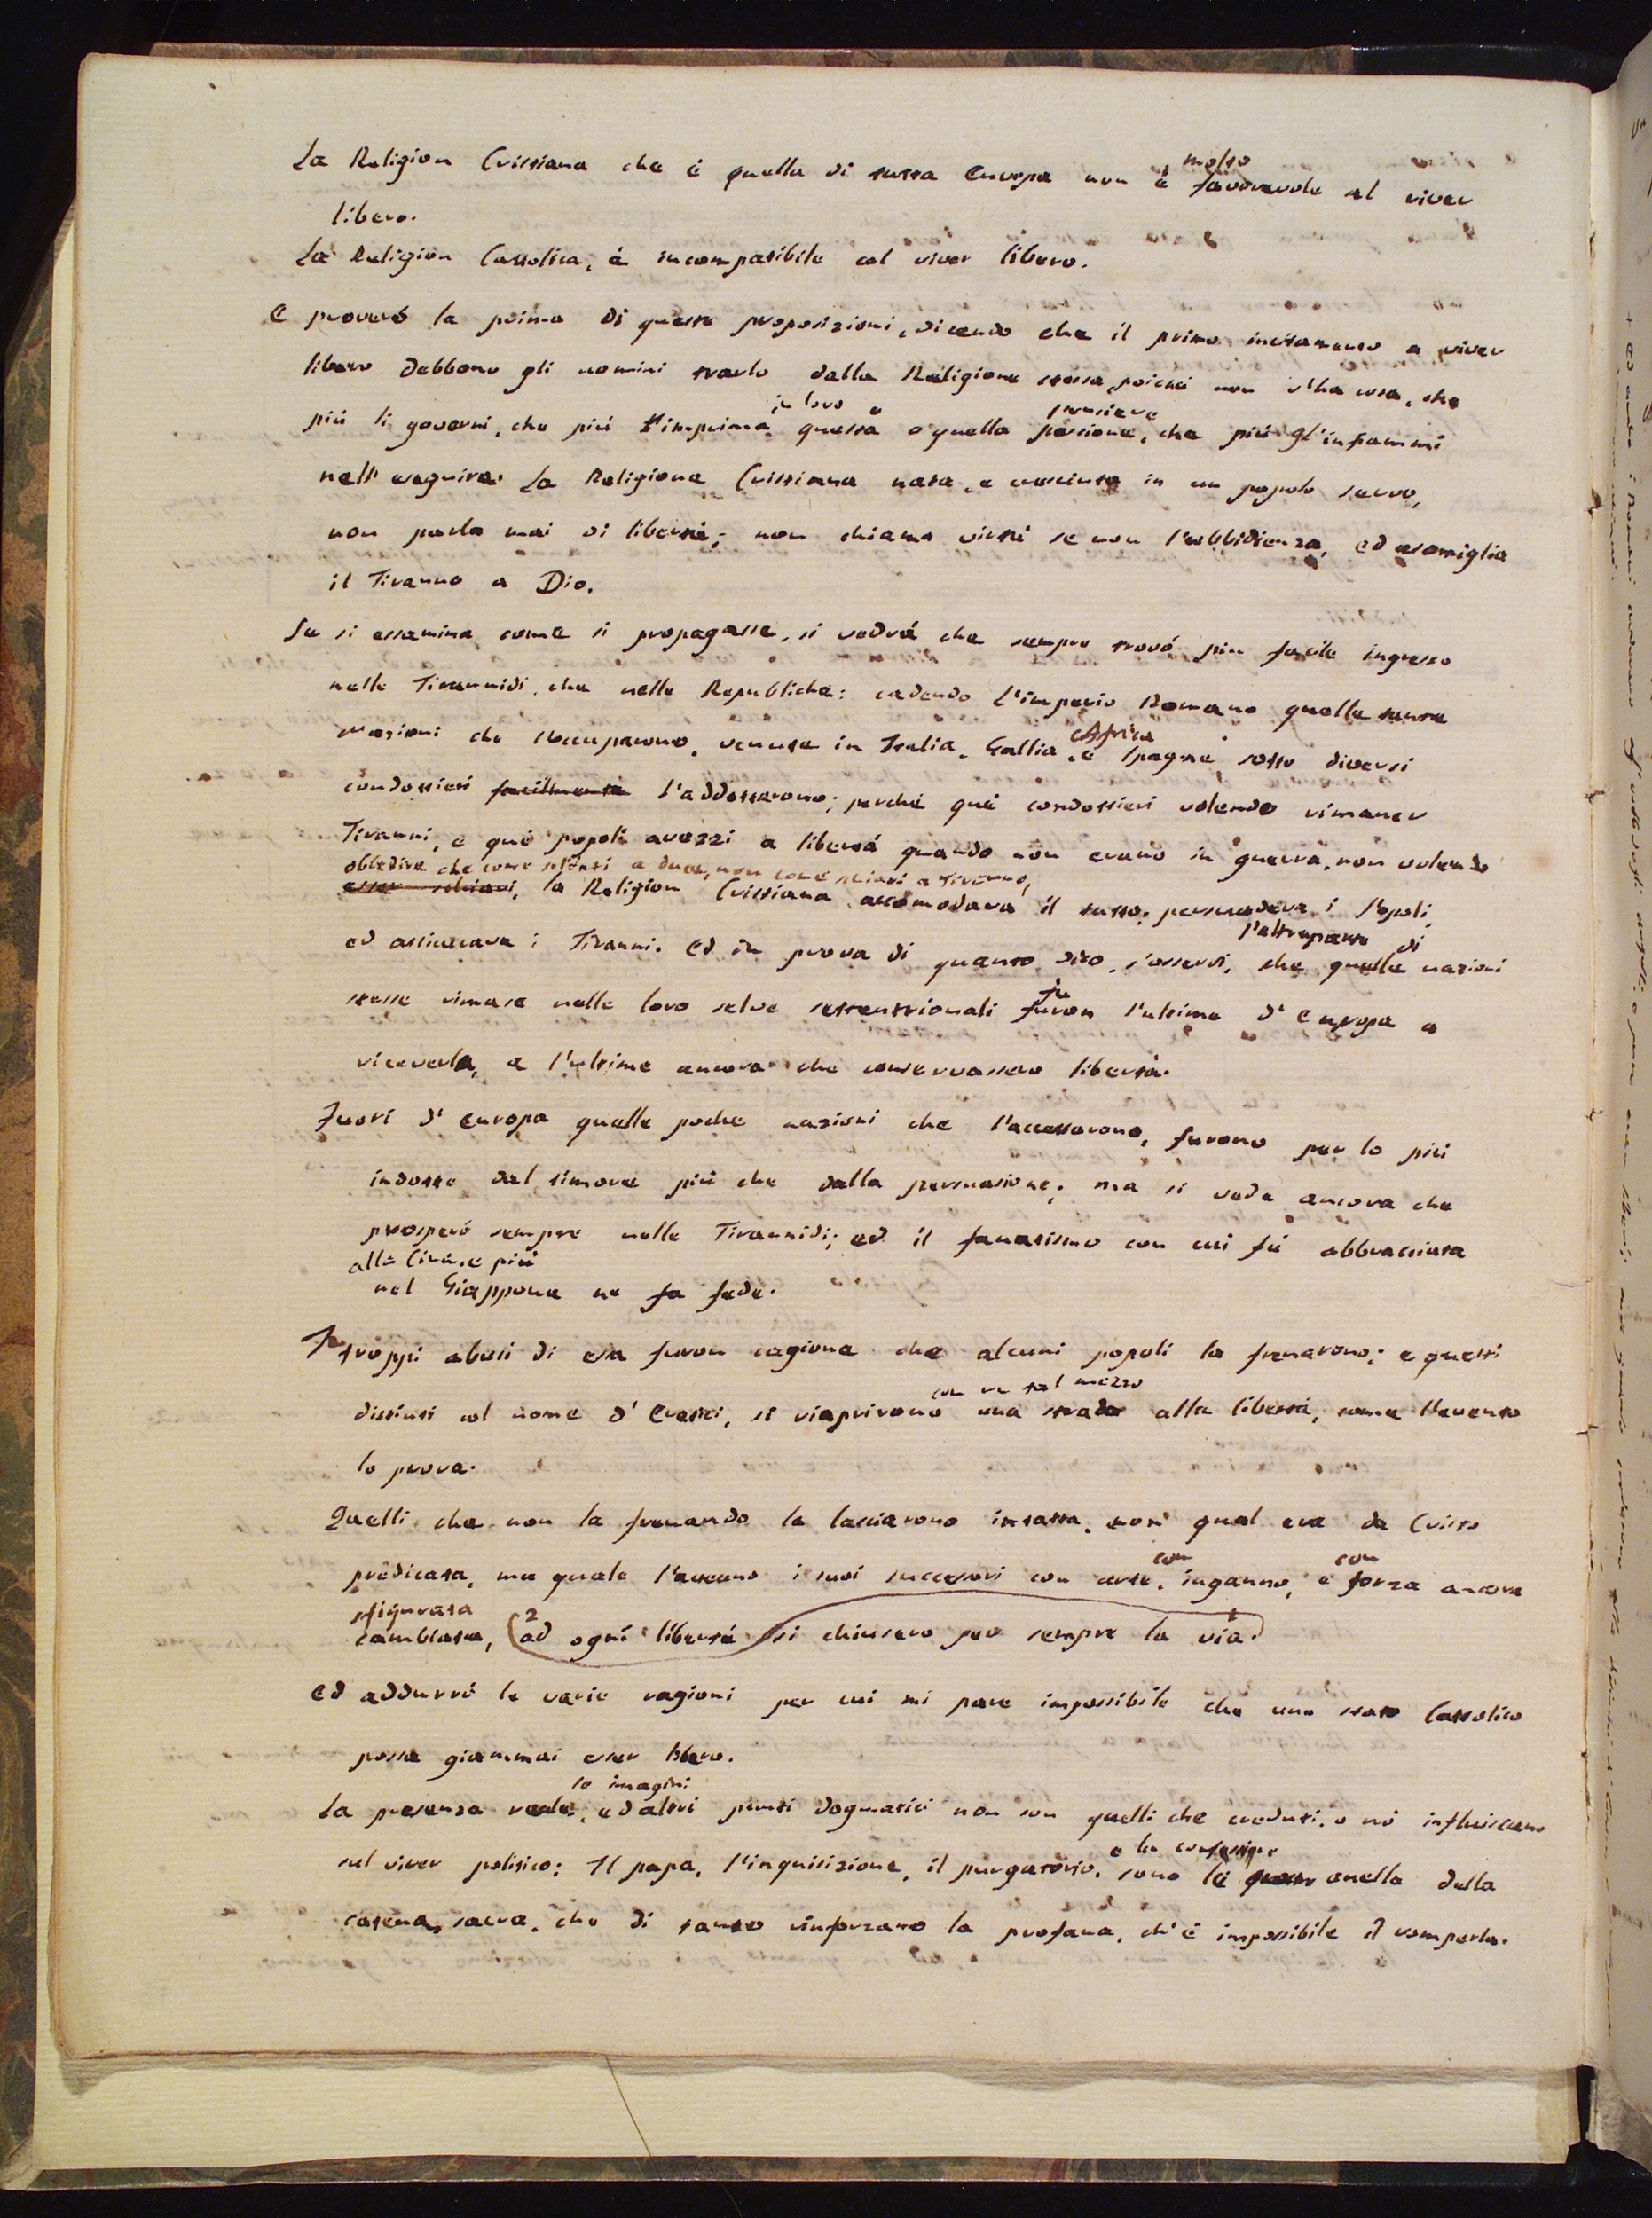 La Religion Cristiana che è quella di tutta Europa non è molto favorevole al viver
libero.
La Religion Cattolica, è incompatibile col viver libero.
E proveró la prima di queste proposizioni, dicendo che il primo incitamento a viver
libero debbono gli uomini trarlo dalla Religione stessa, poiché non v'ha cosa, che
più li governi, che più imprima in loro questa o quella passione, pensiere che più gl'infiammi
nell'eseguire. La Religione Cristiana nata, e cresciuta in un popolo servo,
non parla mai di libertà; non chiama virtù se non l'obbidienza, ed asomiglia
il Tiranno a Dio.
Se si essamina come si propagasse, si vedrá che sempre trovó piu facile ingresso
nelle Tirannidi, che nelle Republiche: cadendo l'imperio Romano quelle tante
nazioni che l'occuparono, venute in Italia, Gallia, Africa e Spagna sotto diversi
condottieri facilmente l'addottarono; perché qué condottieri volendo rimaner
Tiranni, e qué popoli avezzi a libertá quando non erano in guerra, non volendo
obbedire che come soldati a duce, non come schiavi a Tiranno,
esser schiavi, la Religion Cristiana accomodava il tutto; persuadeva i Popoli,
ed assicurava i Tiranni. Ed in prova di quanto dico, s'osservi, che l'altra parte di quelle nazioni
stesse rimase nelle loro selve settentrionali fu furon l'ultime d'Europa a
riceverla, e l'ultime ancora che conservassero libertà.
Fuori d'Europa quelle poche nazioni che l'accettarono, furono per lo più
indotte dal timore più che dalla persuasione; ma si vede ancora che
prosperó sempre nelle Tirannidi; ed il fanatismo con cui fú abbracciata
alla Cina, e più
nel Giappone ne fa fede.
I troppi abusi di esa furon cagione che alcuni popoli la frenarono; e questi
distinti col nome d'Eretici, si riaprirono con un tal mezzo una strada alla libertá, come l'evento
lo prova.
Quelli che non la frenando la lasciarono intatta, non qual era da Cristo
predicata, ma quale l'aveano i suoi successori con arte, con inganno, e con forza ancora
sfigurata
cambiata, (2 ad ogni libertá si chiusero per sempre la via. 1)
Ed addurró le varie ragioni per cui mi pare impossibile che uno stato Cattolico
possa giammai esser libero.
La presenza reale, le imagini ed altri punti dogmatici non son quelli che creduti, o nó influiscano
sul viver politico; Il papa, l'inquisizione, il purgatorio, e la confessione sono le anella della
catena sacra, che di tanto rinforzano la profana, ch'è impossibile il romperla.